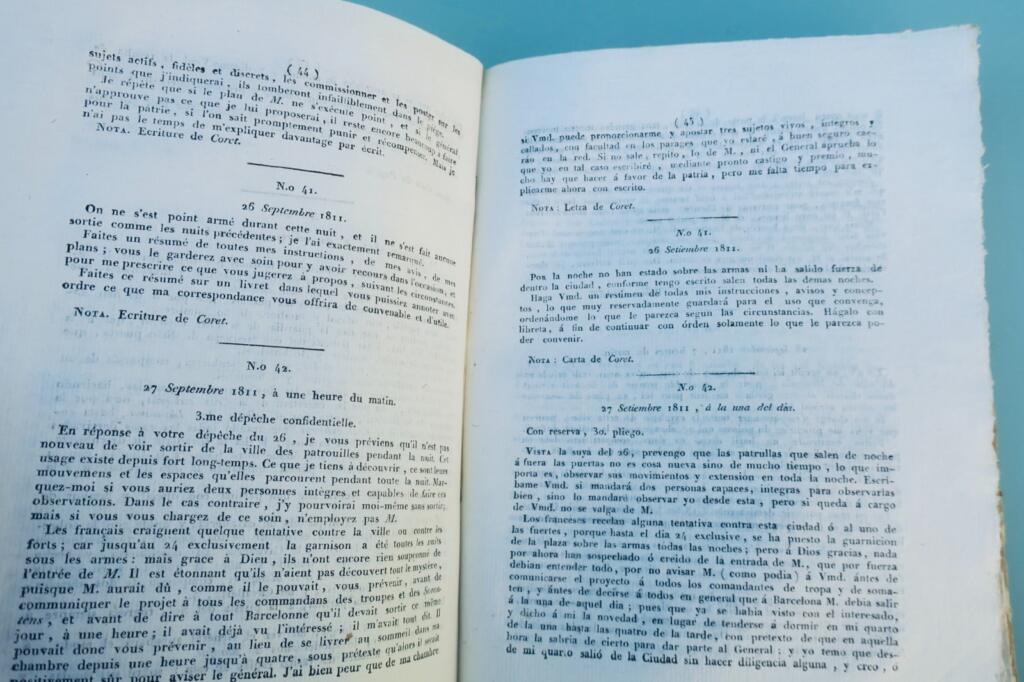 ( 44 )
sujets actifs, fidèles et discrets, les commissionner et les poster sur les
points que j'indiquerai, ils tomberont infailliblement dans le piège.
Je répète que si le plan de M. ne s'exécute point, et si le général
n'approuve pas ce que je lui proposerai, il reste encore beaucoup à faire
pour la patrie, si l'on sait promptement punir et récompenser. Mais je
n'ai pas le temps de m'expliquer davantage par écrit.
NOTA. Ecriture de Coret.
N.o 41.
26 Septembre 1811.
On ne s'est point armé durant cette nuit, et il ne s'est fait aucune
sortie comme les nuits précédentes; je l'ai exactement remarqué.
Faites un résumé de toutes mes instructions, de mes avis, de mes
plans; vous le garderez avec soin pour y avoir recours dans l'occasion, et
pour me prescrire ce que vous jugerez à propos, suivant les circonstances.
Faites ce résumé sur un livret dans lequel vous puissiez annoter avec
ordre ce que ma correspondance vous offrira de convenable et d'utile.
NOTA. Ecriture de Coret.
N.o 42.
27 Septembre 1811, à une heure du matin.
3.me dépêche confidentielle.
En réponse à votre dépêche du 26, je vous préviens qu'il n'est pas
nouveau de voir sortir de la ville des patrouilles pendant la nuit. Cet
usage existe depuis fort long-temps. Ce que je tiens à découvrir, ce sont leurs
mouvemens et les espaces qu'elles parcourent pendant toute la nuit. Mar-
quez-moi si vous auriez deux personnes intègres et capables de faire ces
observations. Dans le cas contraire, j'y pourvoirai moi-même sans sortir;
mais si vous vous chargez de ce soin, n'employez pas M.
Les français craignent quelque tentative contre la ville ou contre les
forts; car jusqu'au 24 exclusivement, la garnison a été toutes les nuits
sous les armes: mais grace à Dieu, ils n'ont encore rien soupçonné de
l'entrée de M. Il est étonnant qu'ils n'aient pas découvert tout le mystère,
puisque M. aurait dû, comme il le pouvait, vous prévenir, avant de
communiquer le projet à tous les commandans des troupes et des Soma-
tens, et avant de dire à tout Barcelonne qu'il devait sortir ce même
jour, à une heure; il avait déjà vu l'intéressé; il m'avait tout dit. Il
pouvait donc vous prévenir, au lieu de se livrer au sommeil dans ma
chambre depuis une heure jusqu'à quatre, sous prétexte qu'alors il serait
positivement sûr pour aviser le général. J'ai bien peur que de ma chambre
( 45 )
si Vmd. puede proporcionarme, y apostar tres sujetos vivos, integros y
callados, con facultad en los parages que yo estaré, á buen seguro cae-
rán en la red. Si no sale, repito, lo de M., ni el General aprueba lo
que yo en tal caso escribiré, mediante pronto castigo y premio, mu-
cho hay que hacer á favor de la patria, pero me falta tiempo para ex-
plicarme ahora con escrito.
NOTA: Letra de Coret.
N.o 41.
26 Setiembre 1811.
Por la noche no han estado sobre las armas ni ha salido fuerza de
dentro la ciudad, conforme tengo escrito salen todas las demas noches.
Haga Vmd. un resumen de todas mis instrucciones, avisos y concep-
tos, lo que muy reservadamente guardará para el uso que convenga,
ordenándome lo que le parezca segun las circunstancias. Hágalo con
libreta, á fin de continuar con órden solamente lo que le parezca po-
der convenir.
NOTA: Carta de Coret.
N.o 42.
27 Setiembre 1811, á la una del dia.
Con reserva, 3o. pliego.
VISTA la suya del 26, prevengo que las patrullas que salen de noche
á fuera las puertas no es cosa nueva sino de mucho tiempo, lo que im-
porta es, observar sus movimientos y extension en toda la noche. Escri-
bame Vmd. si mandará dos personas capaces, integras para observarlas
bien, sino lo mandaré observar yo desde esta, pero si queda á cargo
de Vmd. no se valga de M.
Los franceses recelan alguna tentativa contra esta ciudad ó al uno de
las fuertes, porque hasta el dia 24 exclusive, se ha puesto la guarnicion
de la plaza sobre las armas todas las noches; pero á Dios gracias, nada
por ahora han sospechado ó creido de la entrada de M., que por fuerza
debian entender todo, por no avisar M. (como podia) á Vmd. ántes de
comunicarse el proyecto á todos los comandantes de tropa y de somá-
ten, y ántes de decirse á todos en general que á Barcelona M. debia salir
á la una de aquel dia; pues que ya se habia visto con el interesado,
y dicho á mi la novedad, en lugar de tenderse á dormir en mi quarto
de la una hasta las quatro de la tarde, con pretexto de que en aquella
hora la sabria de cierto para dar parte al General; y yo temo que des-
de mi quarto salió de la Ciudad sin hacer diligencia alguna, y creo, ó